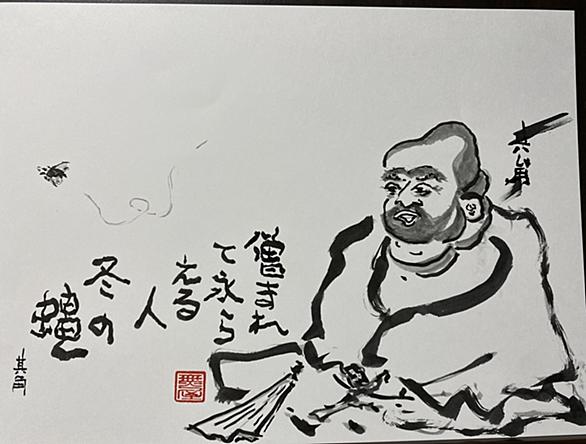 其角
憎まれ
て永ら
える
人
冬の
蠅
其角